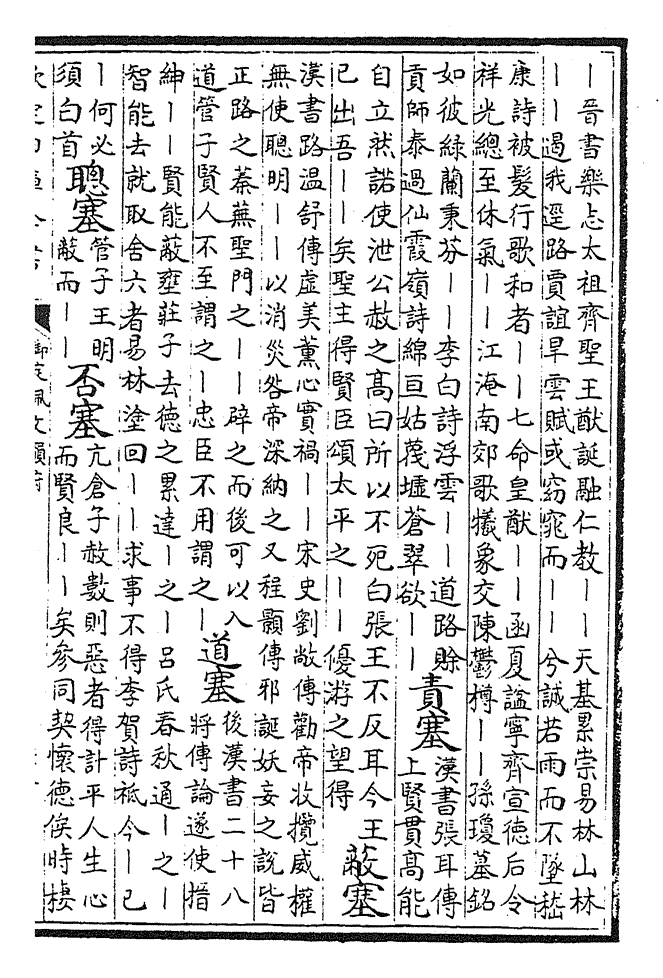 ｜晉書樂志太祖齊聖王猷誕融仁教｜｜天基累崇易林山林
｜｜遏我逕路賈誼旱雲賦或窈窕而｜｜｜兮誠若雨而不墜嵇
康詩被髮行歌和者｜｜七命皇猷｜｜函夏謐寧齊宣德后令
祥光總至休氣｜｜江淹南郊歌犧象交陳鬱樽｜｜孫瓊墓銘
如彼綠蘭秉芬｜｜李白詩浮雲｜｜道路賒
貢師泰過仙霞嶺詩綿亘姑蔑墟蒼翠欲｜｜
責塞
漢書張耳傳
上賢貫高能
自立然諾使泄公赦之高曰所以不死白張王不反耳今王
已出吾｜｜矣聖主得賢臣頌太平之｜｜優游之望得
蔽塞
漢書路溫舒傳虛美薰心實禍｜｜宋史劉敞傳勸帝收攬威權
無使聰明｜｜以消災咎帝深納之又程顥傳邪誕妖妄之說皆
正路之蓁蕪聖門之｜｜辟之而後可以入
道管子賢人不至謂之｜忠臣不用謂之｜
道塞
後漢書二十八
將傳論遂使搢
紳｜｜賢能蔽壅莊子去德之累達｜之｜呂氏春秋通｜之｜
智能去就取舍六者易林塗回｜｜求事不得李賀詩祗今｜已
｜何必
須白首
聰塞
管子王明
蔽而｜｜
否塞
亢倉子赦數則惡者得計平人生心
而賢良｜｜矣參同契懷德俟時棲